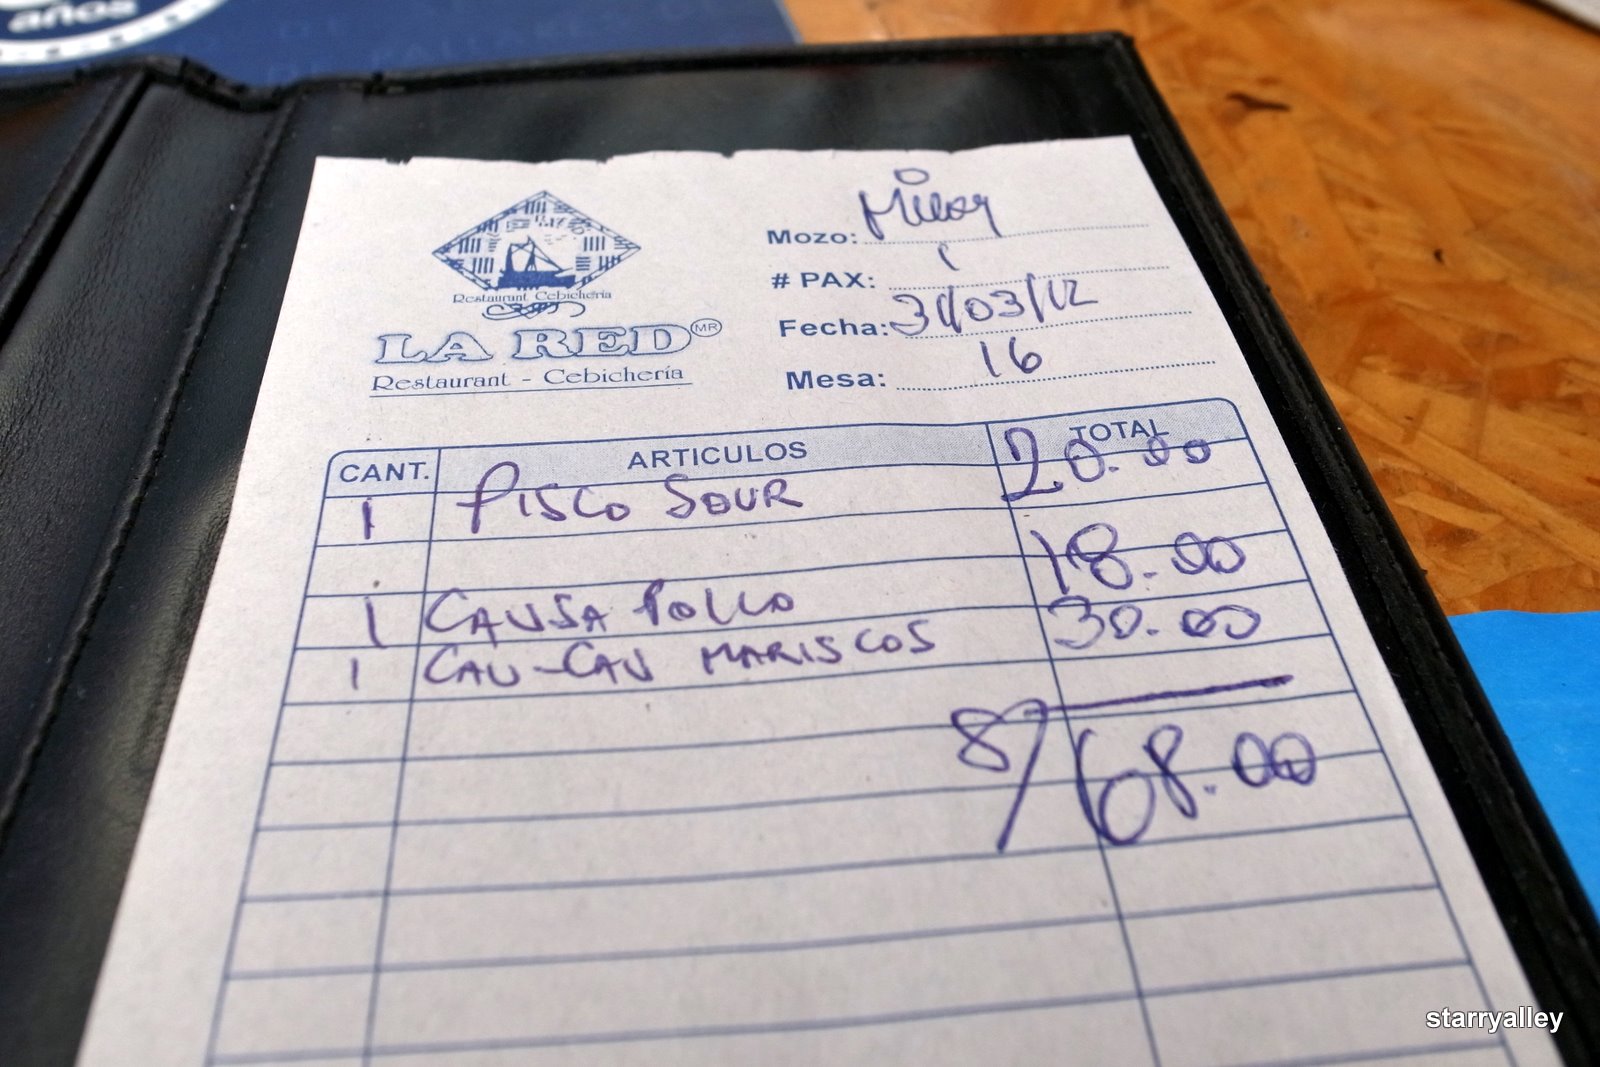 años
Restaurant Cebichería
LA RED MR
Restaurant - Cebichería
Mozo:
# PAX: 1
Fecha: 31/03/12
Mesa: 16
CANT. ARTICULOS TOTAL
1 PISCO SOUR 20.00
1 CAUSA POLLO 18.00
1 CAU-CAU MARISCOS 30.00
S/ 68.00
starryalley